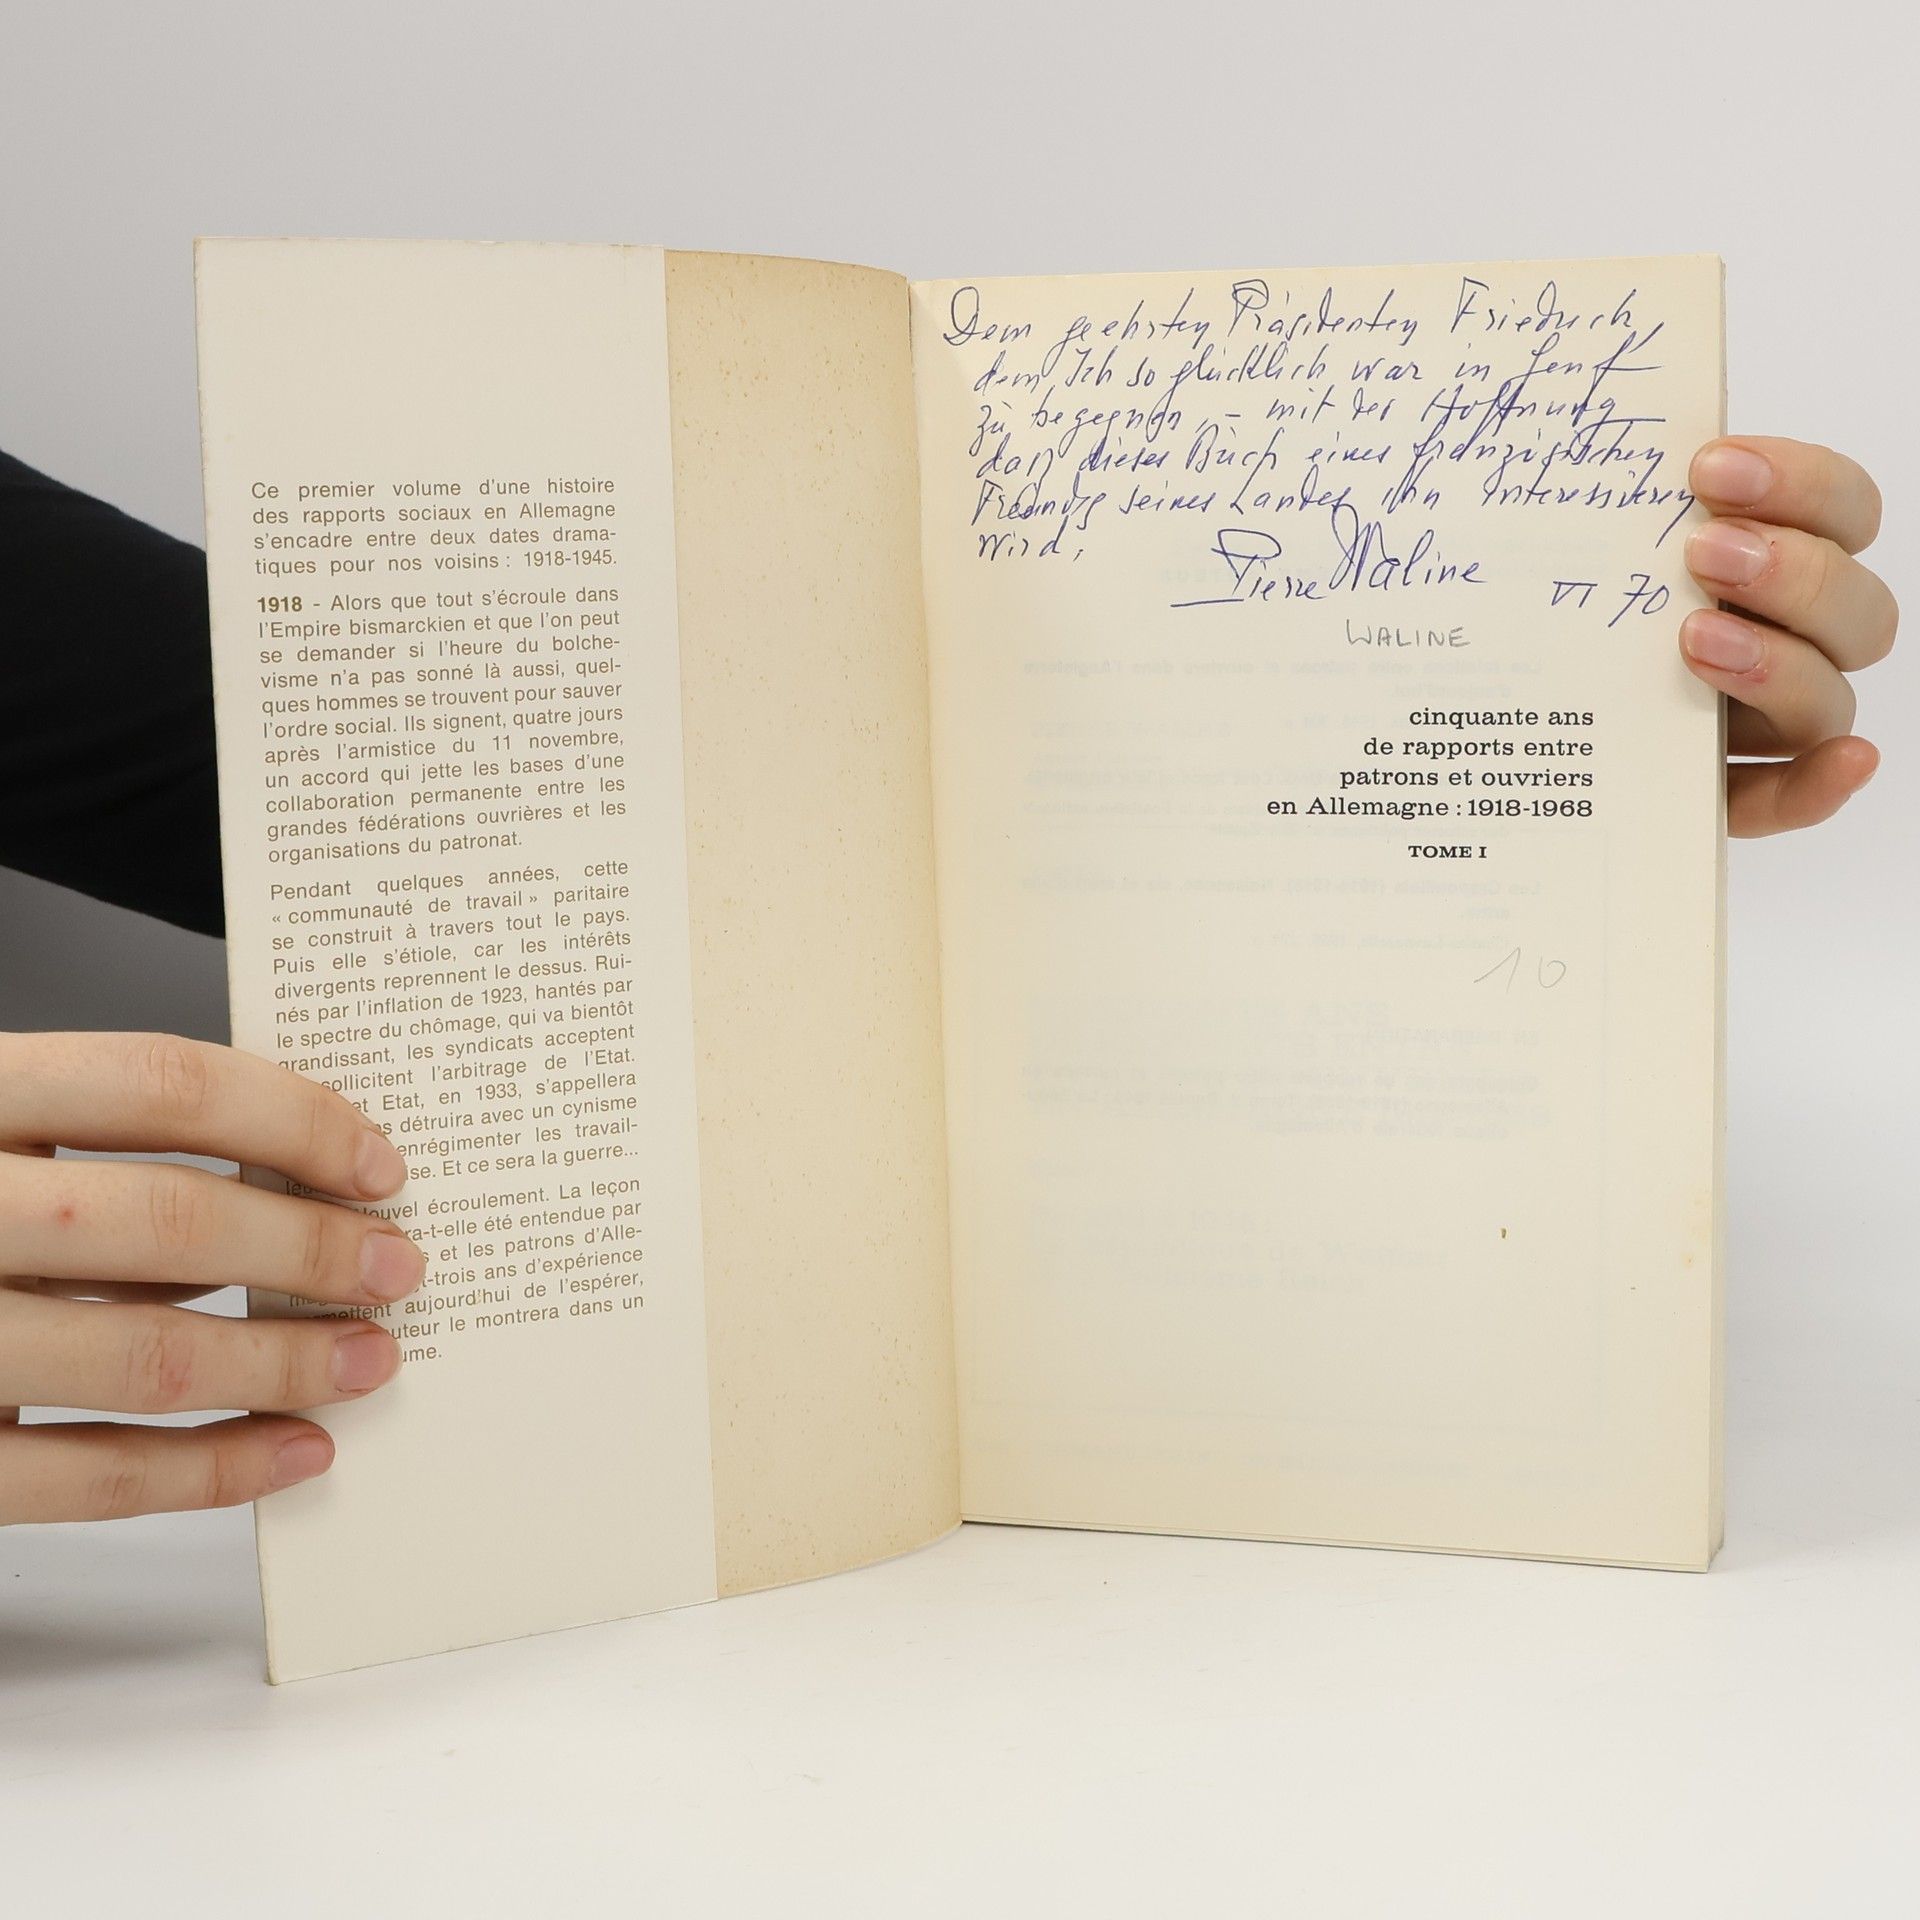 Ce premier volume d'une histoire
des rapports sociaux en Allemagne
s'encadre entre deux dates drama-
tiques pour nos voisins : 1918-1945.
1918 - Alors que tout s'écroule dans
l'Empire bismarckien et que l'on peut
se demander si l'heure du bolche-
visme n'a pas sonné là aussi, quel-
ques hommes se trouvent pour sauver
l'ordre social. Ils signent, quatre jours
après l'armistice du 11 novembre,
un accord qui jette les bases d'une
collaboration permanente entre les
grandes fédérations ouvrières et les
organisations du patronat.
Pendant quelques années, cette
« communauté de travail » paritaire
se construit à travers tout le pays.
Puis elle s'étiole, car les intérêts
divergents reprennent le dessus. Rui-
nés par l'inflation de 1923, hantés par
le spectre du chômage, qui va bientôt
grandissant, les syndicats acceptent
sollicitent l'arbitrage de l'Etat.
et Etat, en 1933, s'appellera
détruira avec un cynisme
enrégimenter les travail-
ise. Et ce sera la guerre...
ouvel écroulement. La leçon
ra-t-elle été entendue par
et les patrons d'Alle-
t-trois ans d'expérience
mettent aujourd'hui de l'espérer,
uteur le montrera dans un
ume.
Dem geehrten Präsidenten Friedrich,
dem Ich so glücklich war in Genf
zu begegnen, – mit der Hoffnung
daß dieses Buch eines französischen
Freundes seines Landes ihn interessieren
wird,
Pierre Waline VI 70
WALINE
cinquante ans
de rapports entre
patrons et ouvriers
en Allemagne : 1918-1968
TOME I
10